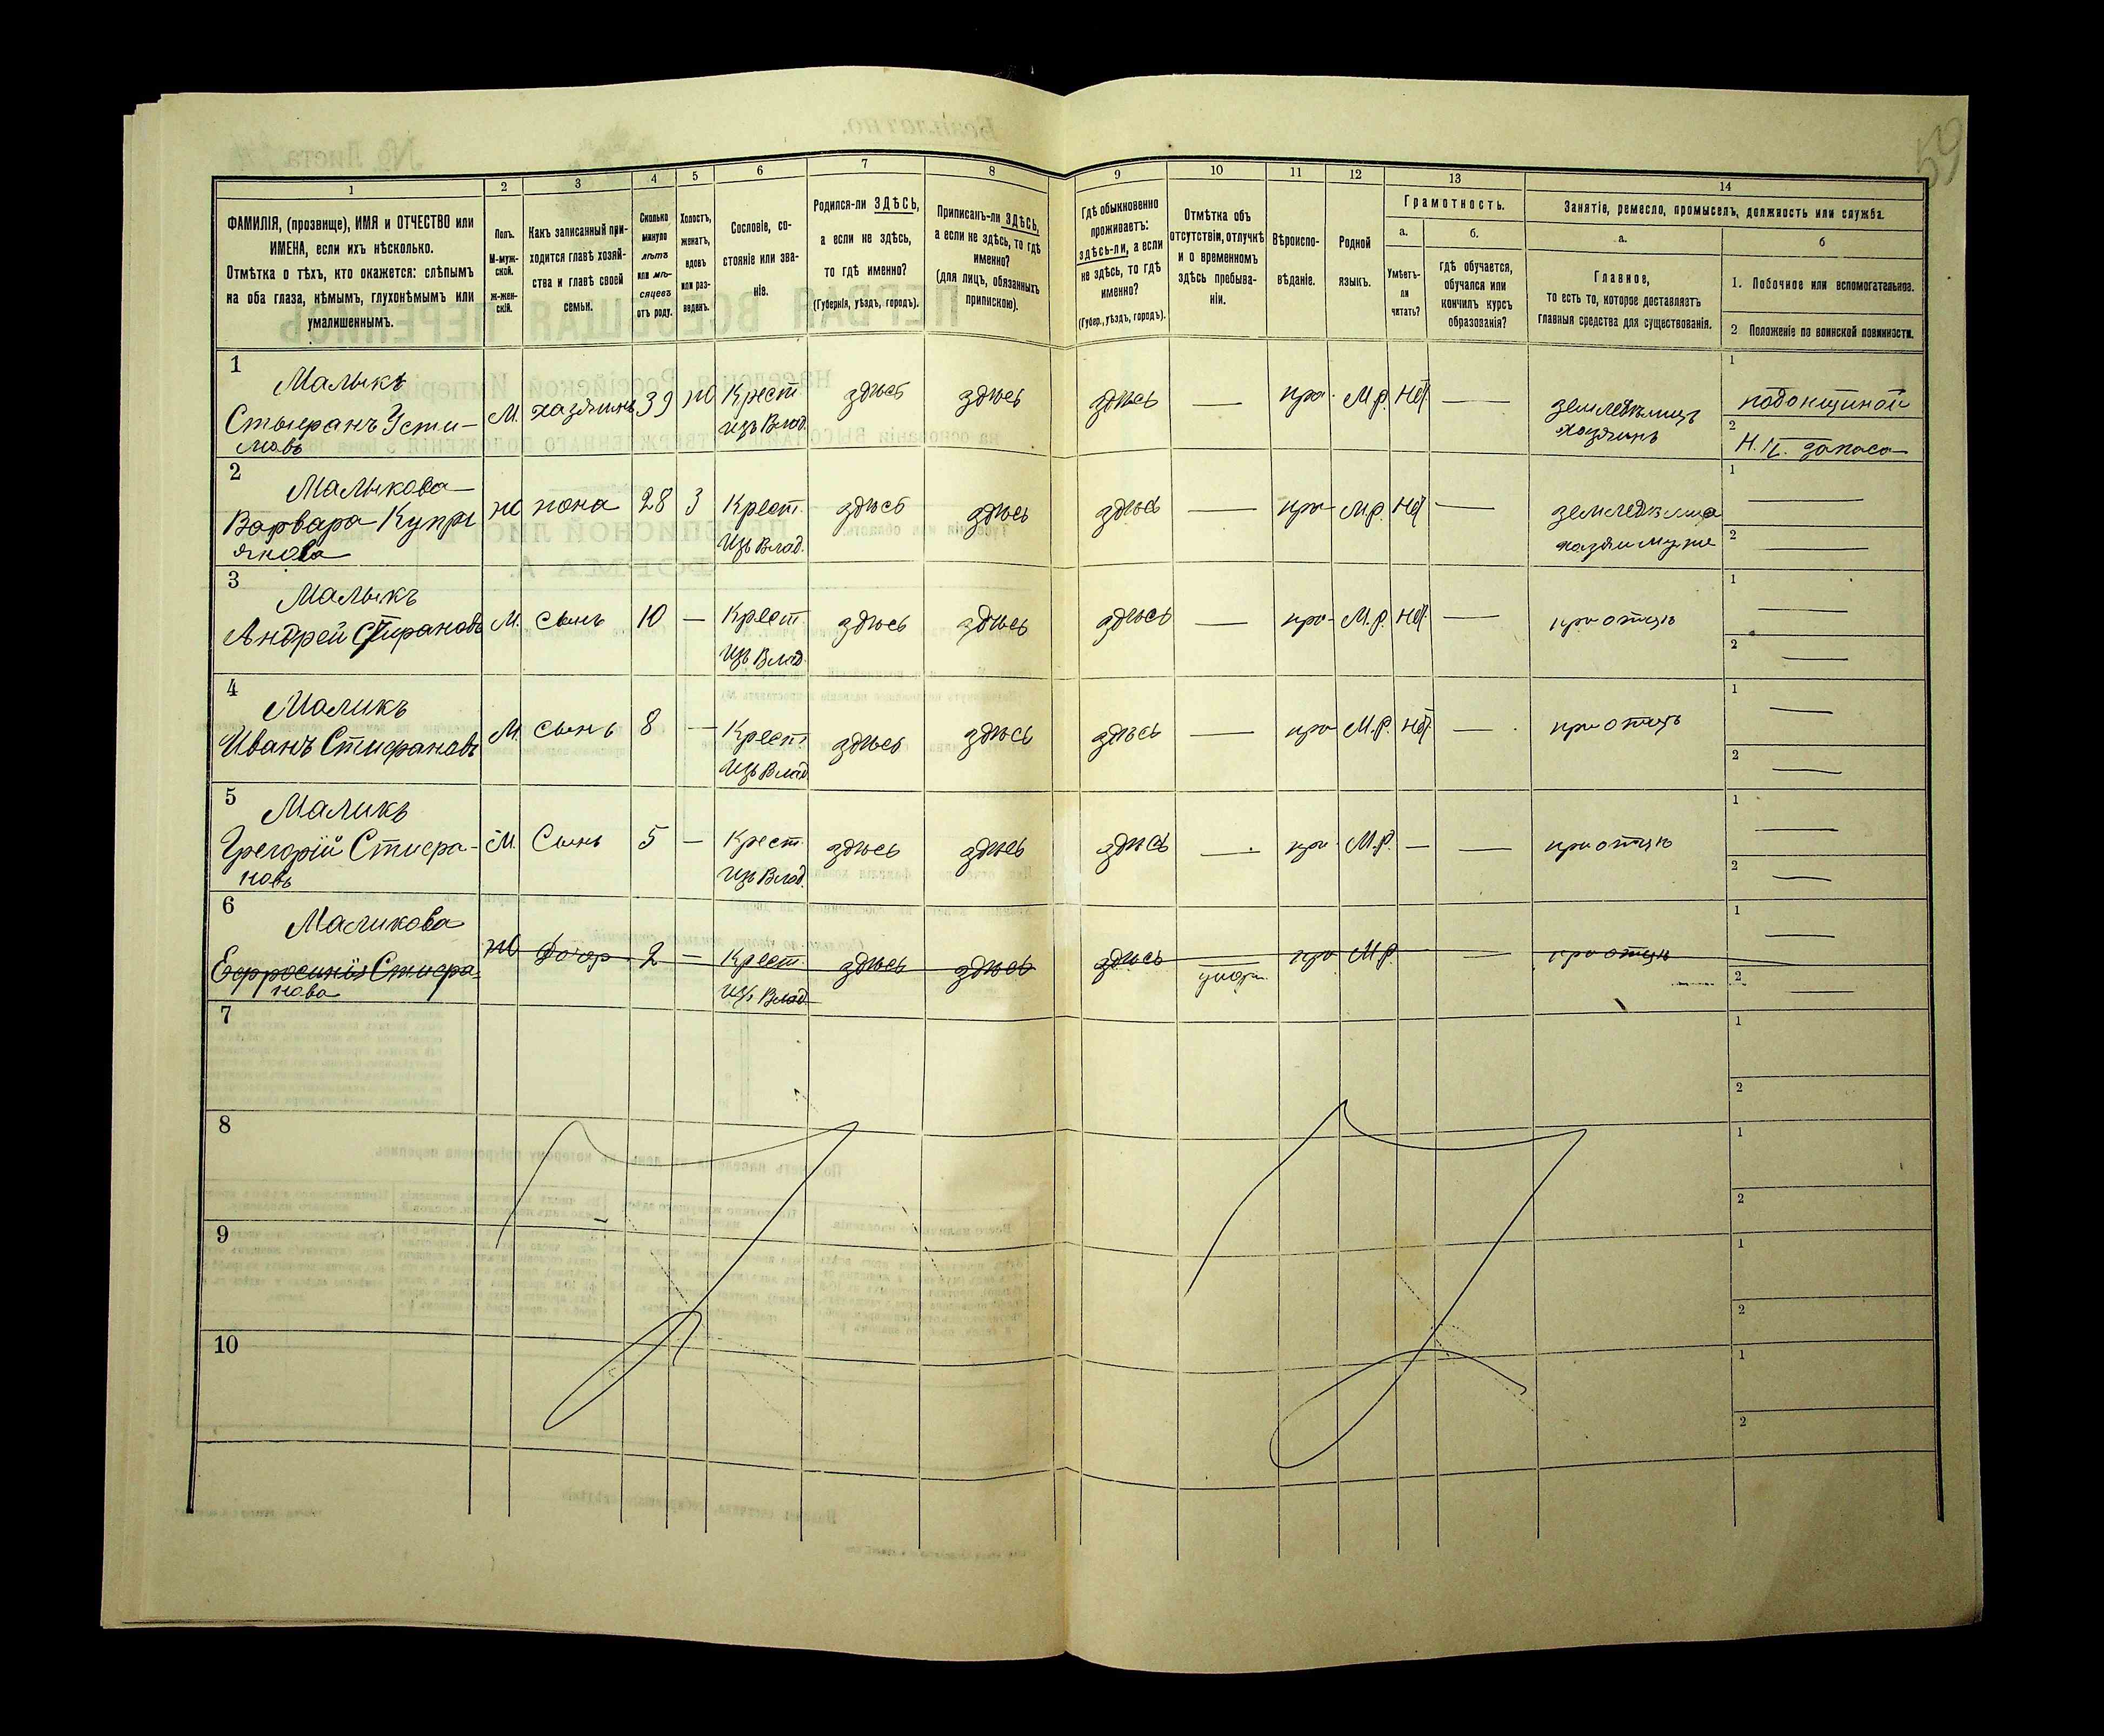 59
1 2 3 4 5 6 7 8 9 10 11 12 13 14
ФАМИЛІЯ, (прозвище), ИМЯ и ОТЧЕСТВО или
ИМЕНА, если ихъ нѣсколько.
Отмѣтка о тѣхъ, кто окажется: слѣпымъ
на оба глаза, нѣмымъ, глухонѣмымъ или
умалишеннымъ.
Полъ.
М-муж-
ской.
Ж-жен-
скій.
Какъ записанный при-
ходится главѣ хозяй-
ства и главѣ своей
семьи.
Сколько
минуло
лѣтъ
или мѣ-
сяцевъ
отъ роду.
Холостъ,
женатъ,
вдовъ
или раз-
веденъ.
Сословіе, со-
стояніе или зва-
ніе.
Родился-ли ЗДѢСЬ,
а если не здѣсь,
то гдѣ именно?
(Губернія, уѣздъ, городъ).
Приписанъ-ли ЗДѢСЬ,
а если не здѣсь, то гдѣ
именно?
(для лицъ, обязанныхъ
припискою).
Гдѣ обыкновенно
проживаетъ:
здѣсь-ли, а если
не здѣсь, то гдѣ
именно?
(Губер., уѣздъ, городъ).
Отмѣтка объ
отсутствіи, отлучкѣ
и о временномъ
здѣсь пребыва-
ніи.
Вѣроиспо-
вѣданіе.
Родной
языкъ.
Грамотность.
а.
Умѣетъ-
ли
читать?
б.
гдѣ обучается,
обучался или
кончилъ курсъ
образованія?
Занятіе, ремесло, промыселъ, должность или служба.
а.
Главное,
то есть то, которое доставляетъ
главныя средства для существованія.
б
1. Побочное или вспомогательное.
2 Положеніе по воинской повинности.
1
Малыкъ
Стыфранъ Усти-
мовъ
М. хазяинъ 39 ж Крест.
изъ Влад.
здѣсь здѣсь здѣсь — пра- М.р. Нѣт —
земледѣлиць
хазяинъ
1
подонщиной
2
Н. Ч. запаса
2
Малыкова
Варвара Купри
янова
ж жона 28 З Крест.
изъ Влад.
здѣсь здѣсь здѣсь — пра- М.р. Нѣт —
1 —
2 —
3
Малыкъ
Андрей Стифановъ
М. сынъ 10 — Крест.
изъ Влад.
здѣсь здѣсь здѣсь — пра- М.р. Нѣт — при отцѣ
1 —
2 —
4
Маликъ
Иванъ Стифановъ
М. сынъ 8 — Крест.
изъ Влад.
здѣсь здѣсь здѣсь — пра М.р. Нѣт — при отцѣ
1 —
2 —
5
Маликъ
Грегорій Стифра-
новъ
М. Сынъ 5 — Крест.
изъ Влад.
здѣсь здѣсь здѣсь — пра- М.р. — — при отцѣ
1 —
2 —
6
Маликова
Ефросинія Стифра-
нова
ж Дочер 2 — Крест.
изъ Влад.
здѣсь здѣсь здѣсь — пра М.р. — при отцѣ
1 —
2 —
7
1
2
8
1
2
9
1
2
10
1
2